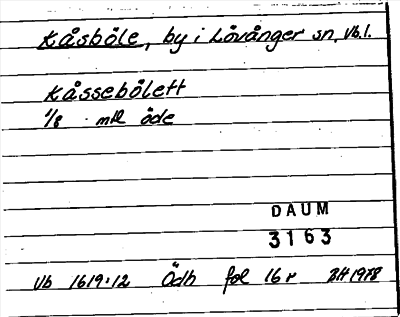 Kåsböle, by i Lövånger sn, Vb.l.
Kåssebölett
1/8 mtl öde
DAUM
3163
Vb 1619:12 Ödh fol 16 r BH 1978